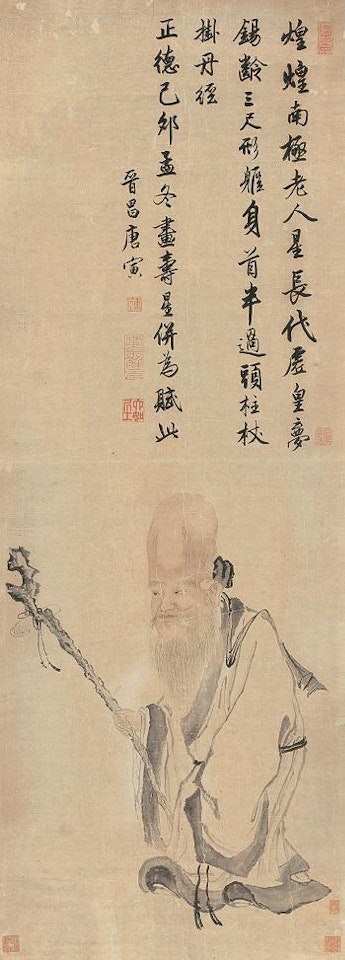 煌煌南極老人星長代虞皇夢
錫齡三尺形軀身首半過頭柱杖
掛丹經
正德己卯孟冬畫壽星併為賦此
晉昌唐寅